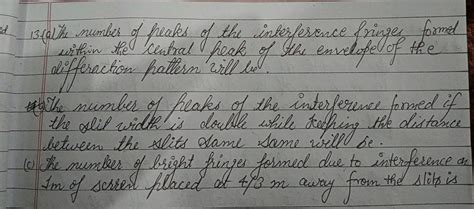 13.(a) The number of peaks of the interference fringes formed
within the central peak of the envelope of the
diffraction pattern will be.
The number of peaks of the interference formed if
the slit width is double while keeping the distance
between the slits same same will be.
(c) The number of bright fringes formed due to interference on
1m of screen placed at 4/3 m away from the slits is